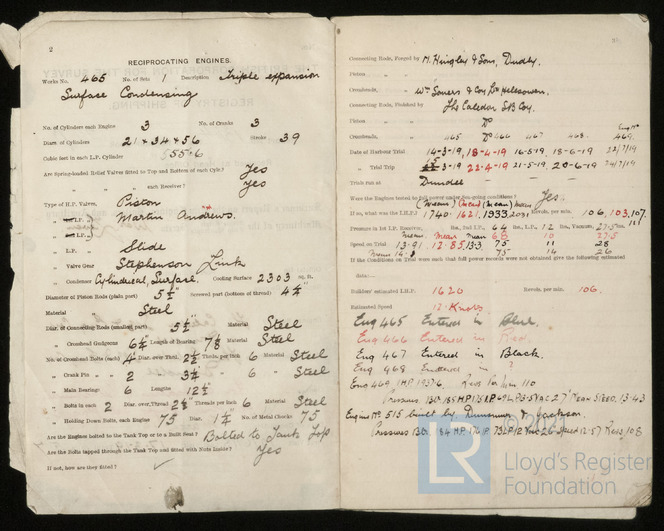 2
RECIPROCATING ENGINES.
Works No. 465 No. of Sets 1 Description Triple expansion
Surface Condensing
No. of Cylinders each Engine 3 No. of Cranks 3
Diars of Cylinders 21 × 34 × 56 Stroke 39
Cubic feet in each L.P. Cylinder 555·6
Are Spring-loaded Relief Valves fitted to Top and Bottom of each Cylr.? Yes
" " each Receiver? Yes
Type of H.P. Valves, Piston
Martin Andrews.
" L.P. " Slide
" Valve Gear Stephenson Link
" Condenser Cylindrical, Surface. Cooling Surface 2303 sq. ft.
Diameter of Piston Rods (plain part) 5½ Screwed part (bottom of thread)
Material " Steel
Diar. of Connecting Rods (smallest part) 5½" Material Steel
" Crosshead Gudgeons 6¼ Length of Bearing 7⅛ Material Steel
No. of Crosshead Bolts (each) 4 Diar. over Thrd. 2½ Thrds. per inch 6 Material Steel
" Crank Pin " 2 " 3¼ " 6 " Steel
" Main Bearings 6 Lengths 12½
" Bolts in each 2 Diar. over Thread Threads per inch 6 Material Steel
" Holding Down Bolts, each Engine 75 Diar. 1¼ No. of Metal Chocks 75
Are the Engines bolted to the Tank Top or to a Built Seat? Bolted to Tank Top
Are the Bolts tapped through the Tank Top and fitted with Nuts Inside? Yes
If not, how are they fitted?
Connecting Rods, Forged by N. Hingley & Sons, Dudley.
Piston " "
Crossheads, " Wm Somers & Coy Ld Halesowen.
Connecting Rods, Finished by The Caledon S.B. Coy.
Piston " " Do
Crossheads, " 465 Do 466 467 468 469
Date of Harbour Trial 14-3-19, 18-4-19 16-5-19 18-6-19 22/7/19
" Trial Trip 22-4-19 21-5-19 20-6-19 24/7/19
Trials run at Dundee
Were the Engines tested to full power under Sea-going conditions? Yes
(Mean) (mean) (mean) mean
If so, what was the I.H.P.? 1740 1621, 1933 2031 Revols. per min. 106, 103, 107.
Pressure in 1st L.P. Receiver, lbs., 2nd L.P., 64 lbs., L.P., 12 lbs., Vacuum, 27·5 ins.
Speed on Trial 13·91 12·85, 13·3 75 11 28
If the Conditions on Trial were such that full power records were not obtained give the following estimated
data:—
Builders' estimated I.H.P. 1620 Revols. per min. 106.
Estimated Speed 12 Knots
Eng 465 Entered in Blue.
Eng 466 Entered in Red.
Eng 467 Entered in Black.
Eng 468 Entered in ?
Eng 469 Revs per min 110
Engine No. 515 built by Dunsmuir & Jackson.
LR
Lloyd's Register
Foundation